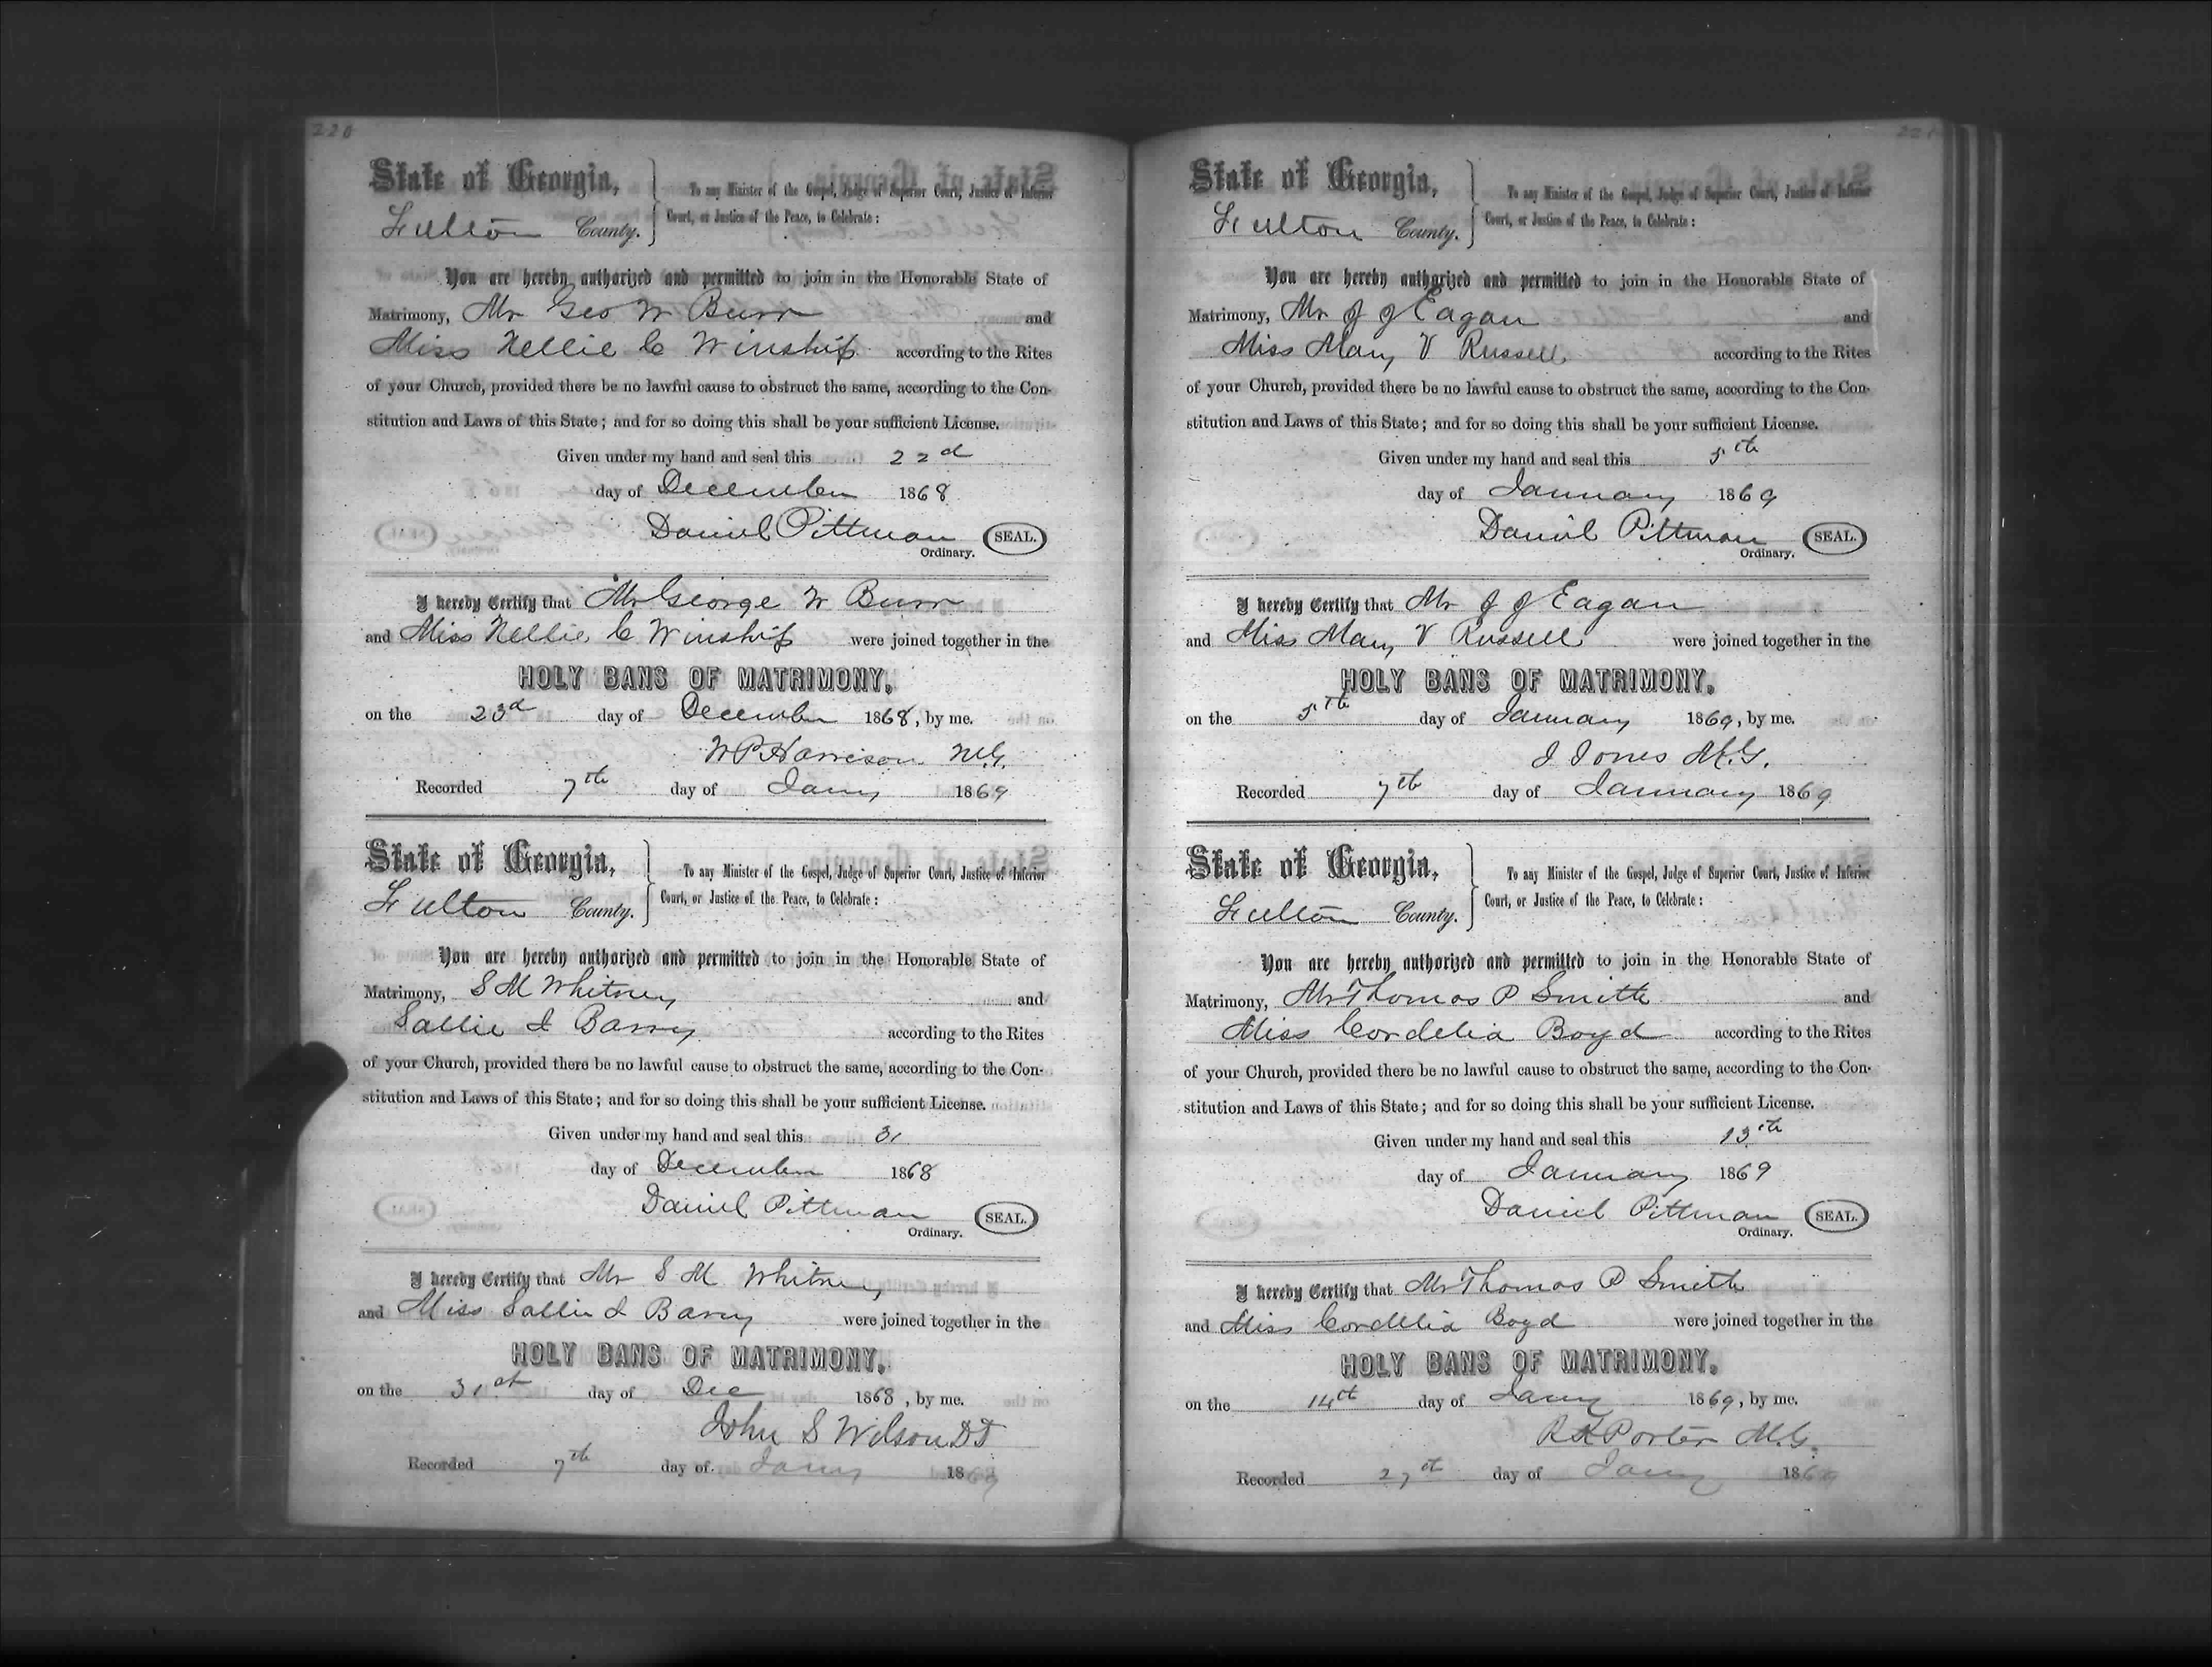 220
State of Georgia,
Fulton County.
To any Minister of the Gospel, Judge of Superior Court, Justice of Inferior
Court, or Justice of the Peace, to Celebrate:
You are hereby authorized and permitted to join in the Honorable State of
Matrimony, Mr Geo W Burr and
Miss Nellie C Winship according to the Rites
of your Church, provided there be no lawful cause to obstruct the same, according to the Con-
stitution and Laws of this State; and for so doing this shall be your sufficient License.
Given under my hand and seal this 22d
day of December 1868
Daniel Pittman SEAL.
Ordinary.
I hereby Certify that Mr George W Burr
and Miss Nellie C Winship were joined together in the
HOLY BANS OF MATRIMONY,
on the 23d day of December 1868, by me.
W P Harrison M.G.
Recorded 7th day of Jany 1869
State of Georgia,
Fulton County.
To any Minister of the Gospel, Judge of Superior Court, Justice of Inferior
Court, or Justice of the Peace, to Celebrate:
You are hereby authorized and permitted to join in the Honorable State of
Matrimony, S M Whitney and
Sallie J Barry according to the Rites
of your Church, provided there be no lawful cause to obstruct the same, according to the Con-
stitution and Laws of this State; and for so doing this shall be your sufficient License.
Given under my hand and seal this 31
day of December 1868
Daniel Pittman SEAL.
Ordinary.
I hereby Certify that Mr S M Whitney
and Miss Sallie J Barry were joined together in the
HOLY BANS OF MATRIMONY,
on the 31st day of Dec 1868, by me.
John S Wilson DD
Recorded 7th day of Jany 1869
State of Georgia,
Fulton County.
To any Minister of the Gospel, Judge of Superior Court, Justice of Inferior
Court, or Justice of the Peace, to Celebrate:
You are hereby authorized and permitted to join in the Honorable State of
Matrimony, Mr J J Eagan and
Miss Mary V Russell according to the Rites
of your Church, provided there be no lawful cause to obstruct the same, according to the Con-
stitution and Laws of this State; and for so doing this shall be your sufficient License.
Given under my hand and seal this 5th
day of January 1869
Daniel Pittman SEAL.
Ordinary.
I hereby Certify that Mr J J Eagan
and Miss Mary V Russell were joined together in the
HOLY BANS OF MATRIMONY,
on the 5th day of January 1869, by me.
J Jones M.G.
Recorded 7th day of January 1869
State of Georgia,
Fulton County.
To any Minister of the Gospel, Judge of Superior Court, Justice of Inferior
Court, or Justice of the Peace, to Celebrate:
You are hereby authorized and permitted to join in the Honorable State of
Matrimony, Mr Thomas P Smith and
Miss Cordelia Boyd according to the Rites
of your Church, provided there be no lawful cause to obstruct the same, according to the Con-
stitution and Laws of this State; and for so doing this shall be your sufficient License.
Given under my hand and seal this 13th
day of January 1869
Daniel Pittman SEAL.
Ordinary.
I hereby Certify that Mr Thomas P Smith
and Miss Cordelia Boyd were joined together in the
HOLY BANS OF MATRIMONY,
on the 14th day of Jany 1869, by me.
R K Porter M.G.
Recorded 27th day of Jany 1869